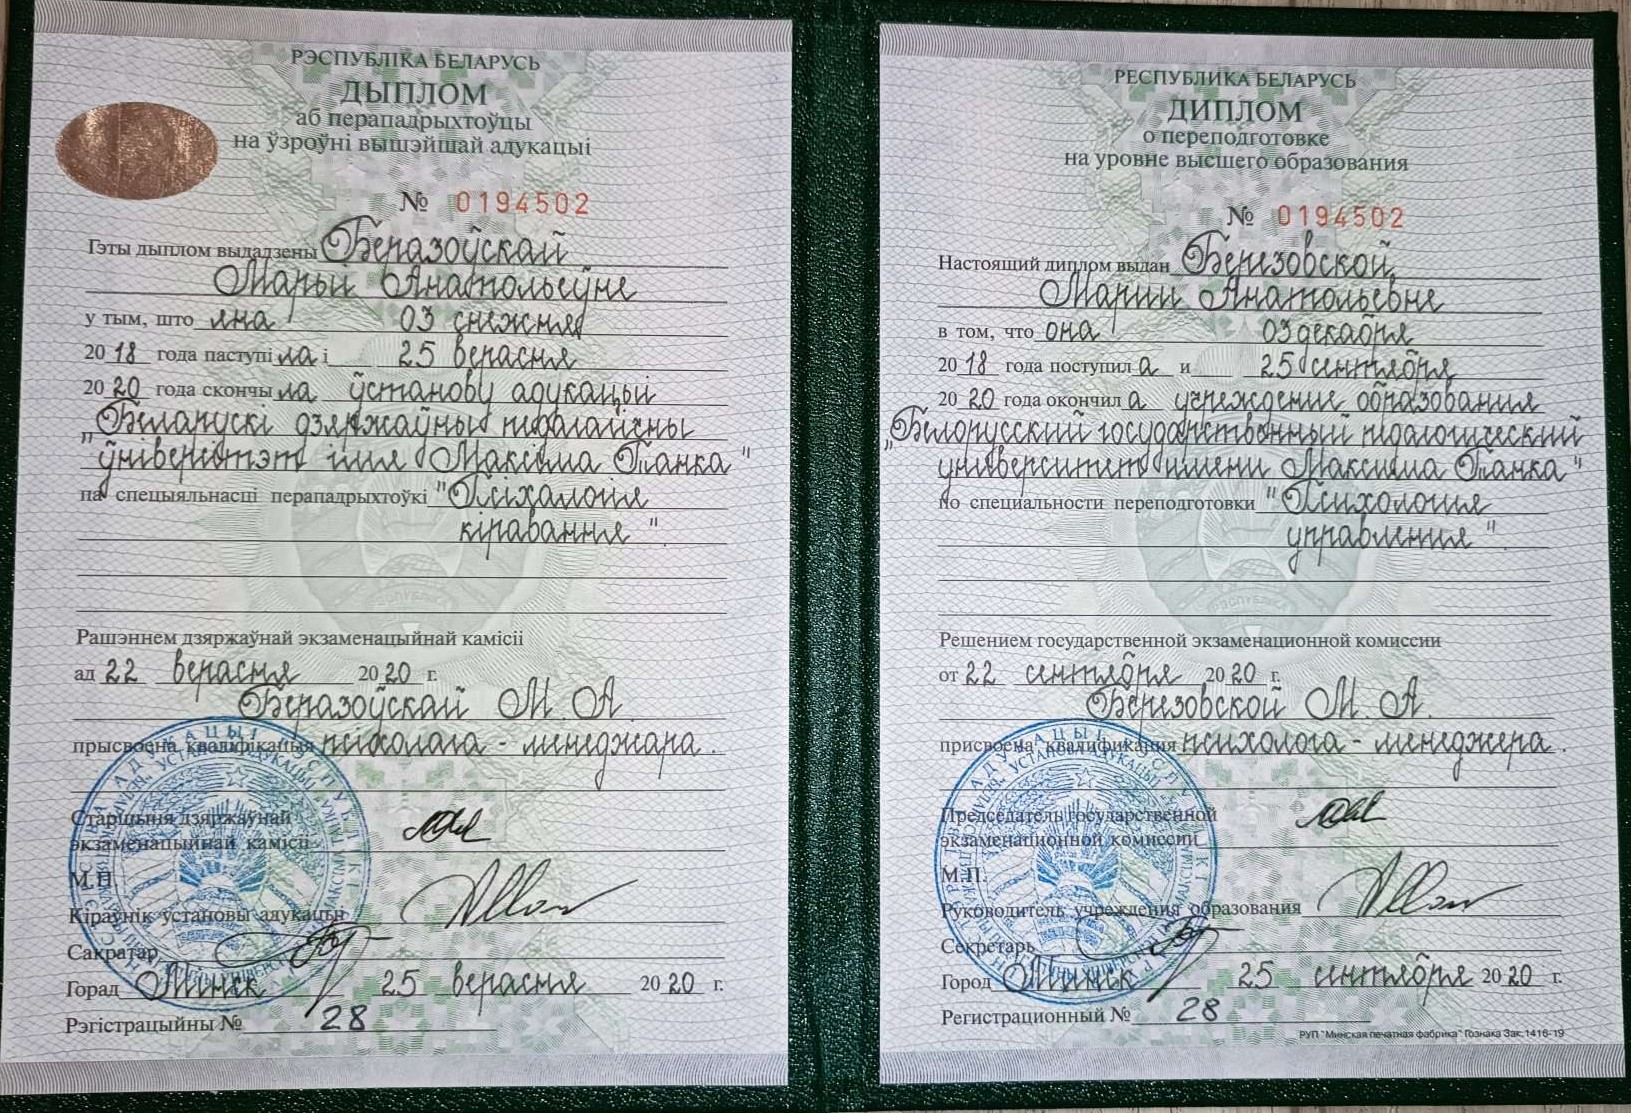 РЭСПУБЛІКА БЕЛАРУСЬ
ДЫПЛОМ
аб перападрыхтоўцы
на ўзроўні вышэйшай адукацыі
№ 0194502
Гэты дыплом выдадзены Беразоўскай
Марыі Анатольеўне
у тым, што яна 03 снежня
2018 года паступіла і 25 верасня
2020 года скончыла ўстанову адукацыі
"Беларускі дзяржаўны педагагічны
ўніверсітэт імя Максіма Танка"
па спецыяльнасці перападрыхтоўкі "Псіхалогія
кіравання".
Рашэннем дзяржаўнай экзаменацыйнай камісіі
ад 22 верасня 2020 г.
Беразоўскай М. А.
прысвоена кваліфікацыя псіхолага - менеджара.
Старшыня дзяржаўнай
экзаменацыйнай камісіі
М.П.
Кіраўнік установы адукацыі
Сакратар
Горад Мінск 25 верасня 2020 г.
Рэгістрацыйны № 28
РЕСПУБЛИКА БЕЛАРУСЬ
ДИПЛОМ
о переподготовке
на уровне высшего образования
№ 0194502
Настоящий диплом выдан Березовской
Марии Анатольевне
в том, что она 03 декабря
2018 года поступила и 25 сентября
2020 года окончила учреждение образования
"Белорусский государственный педагогический
университет имени Максима Танка"
по специальности переподготовки "Психология
управления".
Решением государственной экзаменационной комиссии
от 22 сентября 2020 г.
Березовской М. А.
присвоена квалификация психолога - менеджера.
Председатель государственной
экзаменационной комиссии
М.П.
Руководитель учреждения образования
Секретарь
Город Минск 25 сентября 2020 г.
Регистрационный № 28
РУП "Минская печатная фабрика" Гознака Зак.1416-19